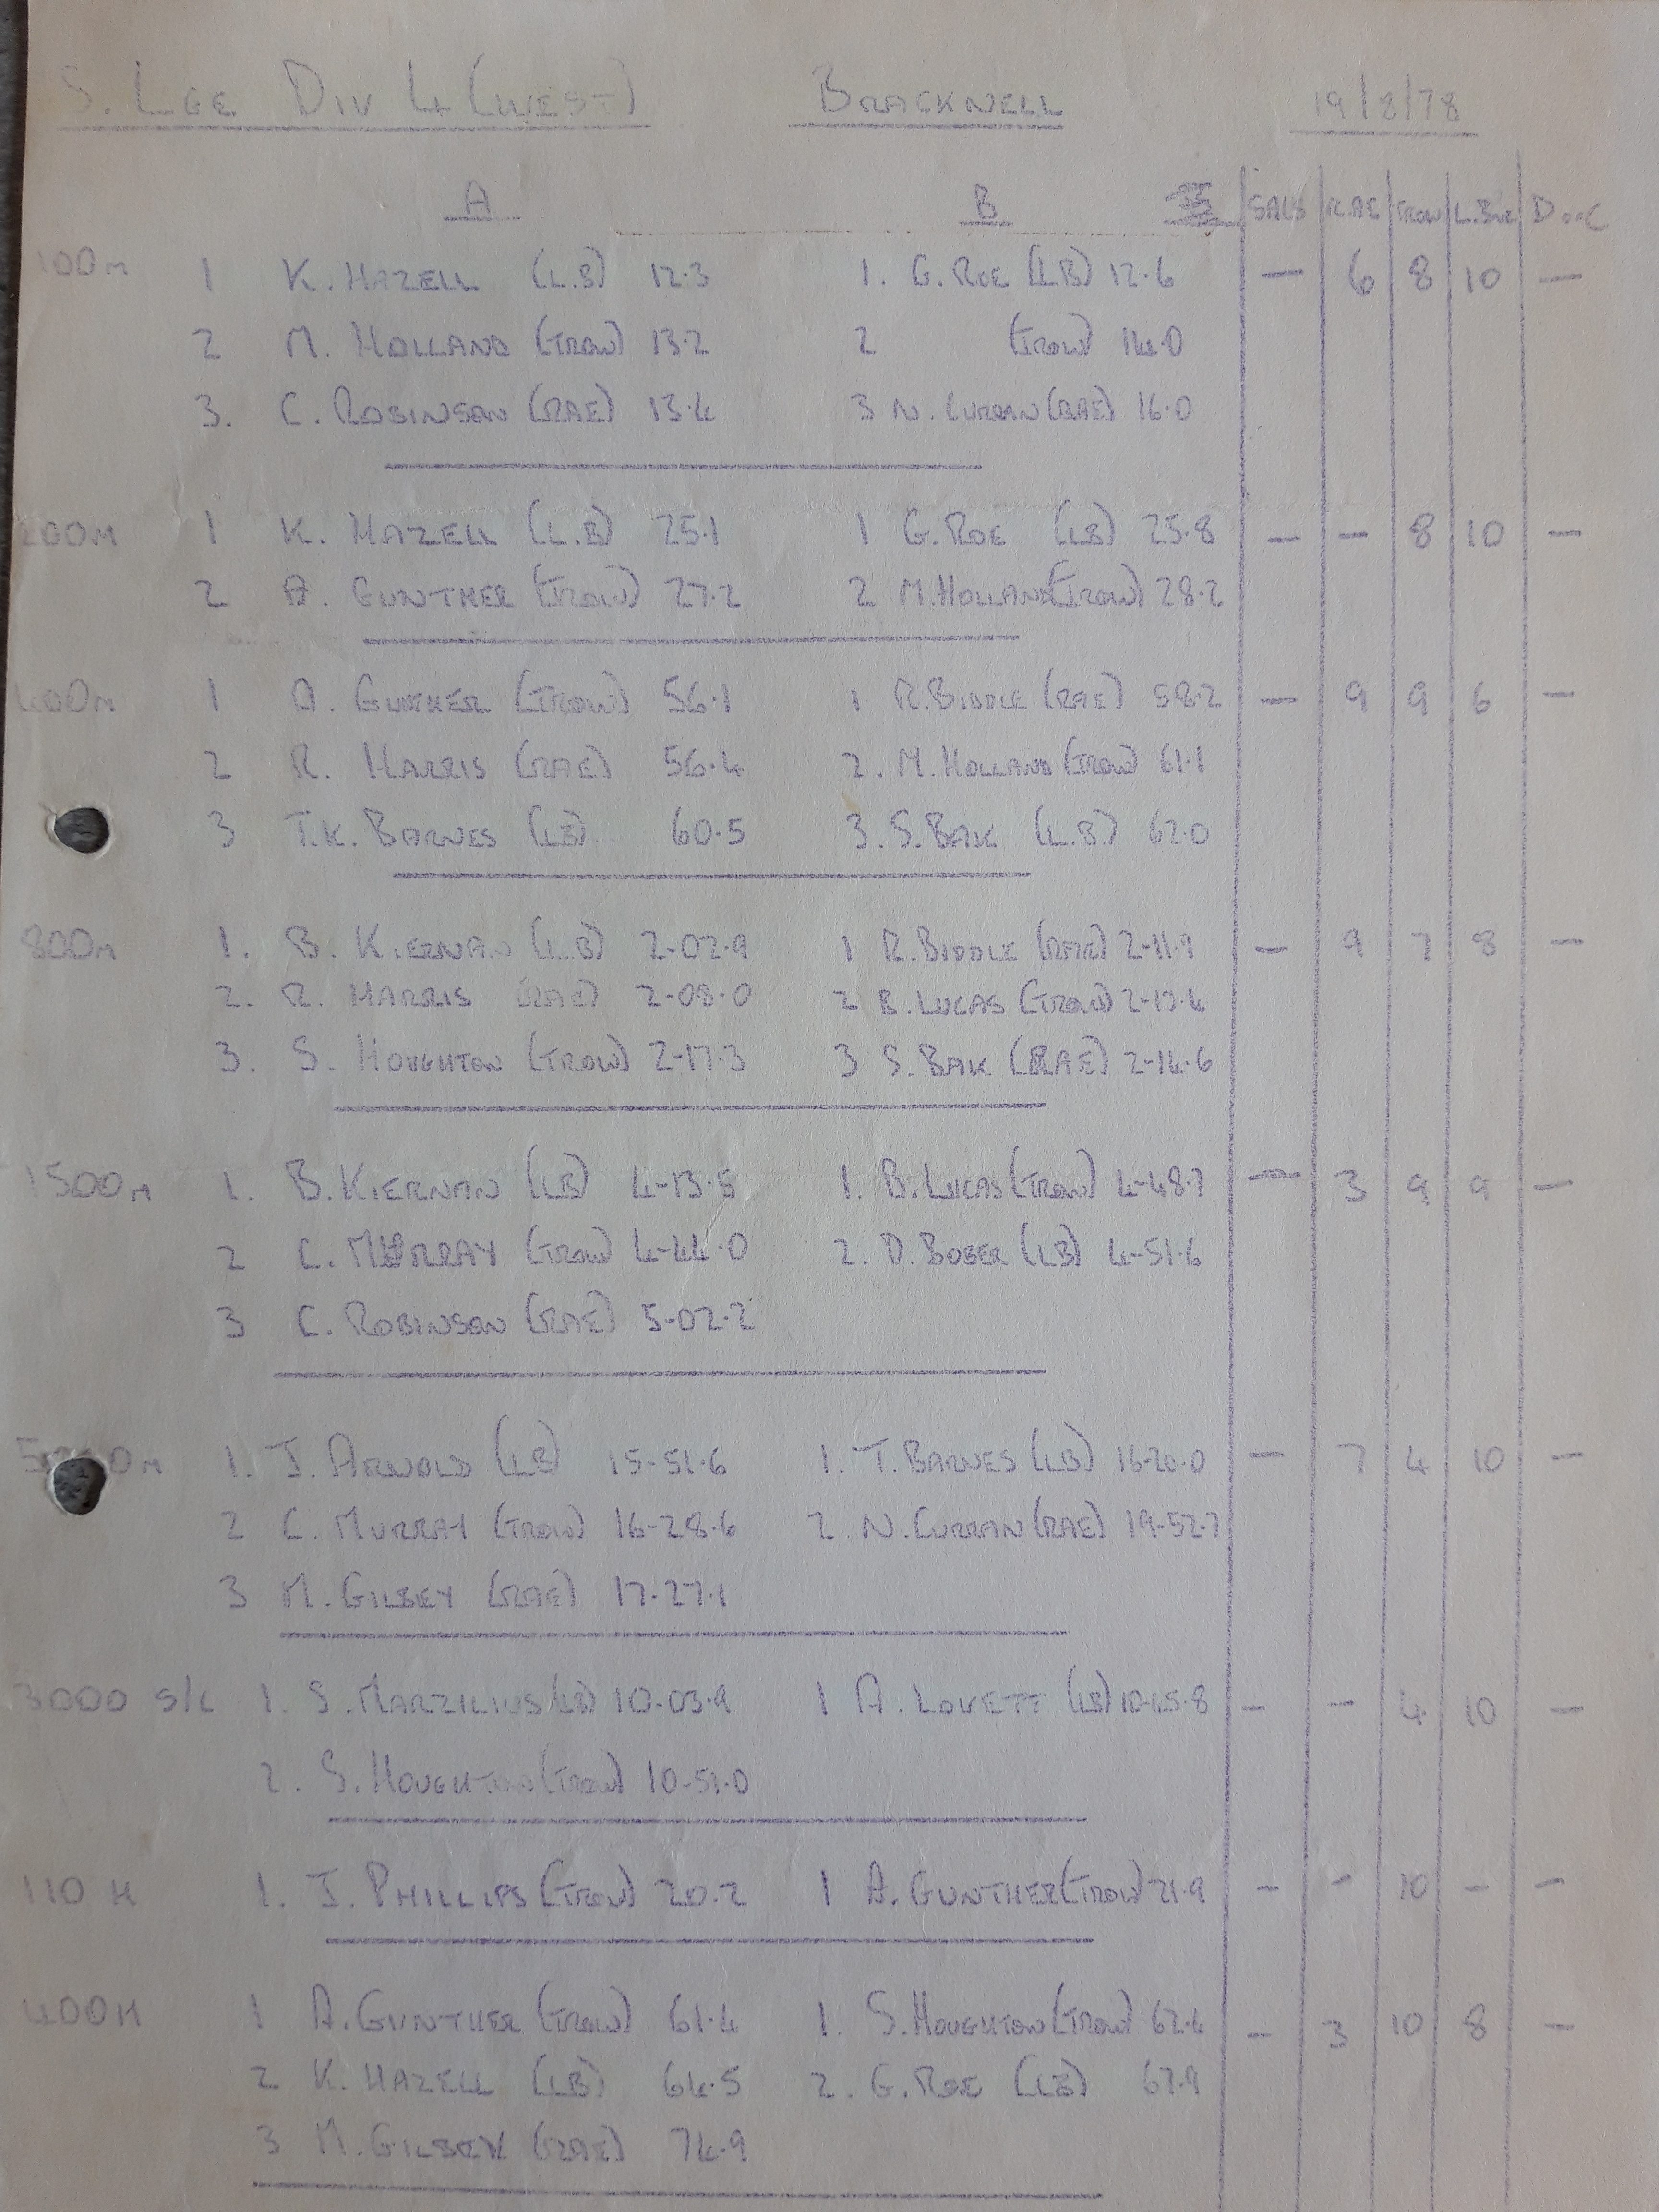 S. LGE DIV 4 (WEST) BRACKNELL 19/8/78
A B SALS R.AE TROW L.BUZ
100M 1 K. HAZELL (L.B) 12.3 1. G. ROE (LB) 12.6 — 6 8 10 —
2 M. HOLLAND (TROW) 13.2 2 (TROW) 14.0
3. C. ROBINSON (RAE) 13.4 3 N. CURRAN (RAE) 16.0
200M 1 K. HAZELL (L.B) 25.1 1 G. ROE (LB) 25.8 — — 8 10 —
2 A. GUNTHER (TROW) 27.2 2 M. HOLLAND (TROW) 28.2
400M 1 A. GUNTHER (TROW) 56.1 1 R. BIDDLE (RAE) 58.2 — 9 9 6 —
2 R. HARRIS (RAE) 56.4 2. M. HOLLAND (TROW) 61.1
3 T.K. BARNES (LB) 60.5 3. S. BAK (L.B.) 62.0
800M 1. B. KIERNAN (L.B) 2-02.9 1 R. BIDDLE (RAE) 2-11.9 — 9 7 8 —
2. R. HARRIS (RAE) 2-08.0 2 B. LUCAS (TROW) 2-13.4
3. S. HOUGHTON (TROW) 2-17.3 3 S. BAK (RAE) 2-14.6
1500M 1. B. KIERNAN (LB) 4-13.5 1. B. LUCAS (TROW) 4-48.7 — 3 9 9 —
2 C. MURRAY (TROW) 4-44.0 2. D. BOBER (LB) 4-51.6
3 C. ROBINSON (RAE) 5-02.2
M 1. J. ARNOLD (LB) 15-51.6 1. T. BARNES (LB) 16-20.0 — 7 4 10 —
2 C. MURRAY (TROW) 16-28.6 2. N. CURRAN (RAE) 19-52.7
3 M. GILBEY (RAE) 17-27.1
3000 S/C 1. S. MARZILIUS (LB) 10-03.9 1 A. LOVETT (LB) 10-45.8 — — 4 10 —
2. S. HOUGHTON (TROW) 10-51.0
110 H 1. J. PHILLIPS (TROW) 20.2 1 A. GUNTHER (TROW) 21.9 — — 10 — —
400H 1 A. GUNTHER (TROW) 61.4 1. S. HOUGHTON (TROW) 62.4 — 3 10 8 —
2 K. HAZELL (LB) 64.5 2. G. ROE (LB) 67.9
3 M. GILBEY (RAE) 74.9